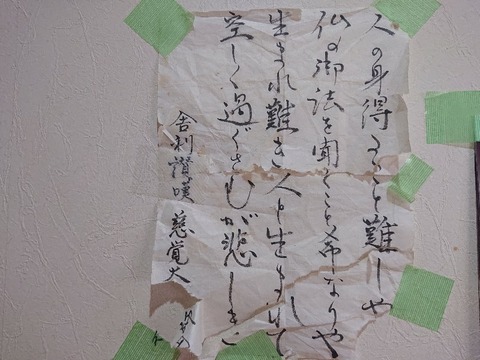 人の身得ること難しや
仏の御法を聞くこと希なりや
生まれ難き人と生まれて
し
空しく過ぐさむが悲しきこ
舎利讃嘆 慈覚大